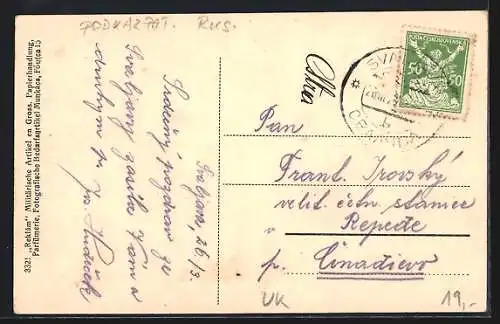 PODKARPAT. Rus.
332. „Reklám" Militärische Artikel en Gross, Papierhandlung,
Parfümerie, Fotografische Bedarfsartikel Munkács, Főutca 15
Svaljava, 26/3.
Srdečný pozdrav ze
Svaljavy zasílá Vám a
Jar. Hudeček
POŠTA ČESKOSLOVENSKÁ
50 50
Pan
Frant. Trovský
velit. četn. stanice
Repede
p. Činadievo
UK
19,-